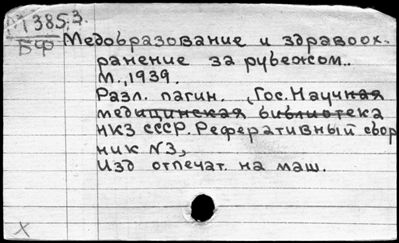 М1385,3.
БФ
Медобразование и здравоох-
ранение за рубежом..
М., 1939.
Разл. пагин. (Гос. Научная
медицинская библиотека
НКЗ СССР. Реферативный сбор
ник №3,
Изд отпечат. на маш.
X